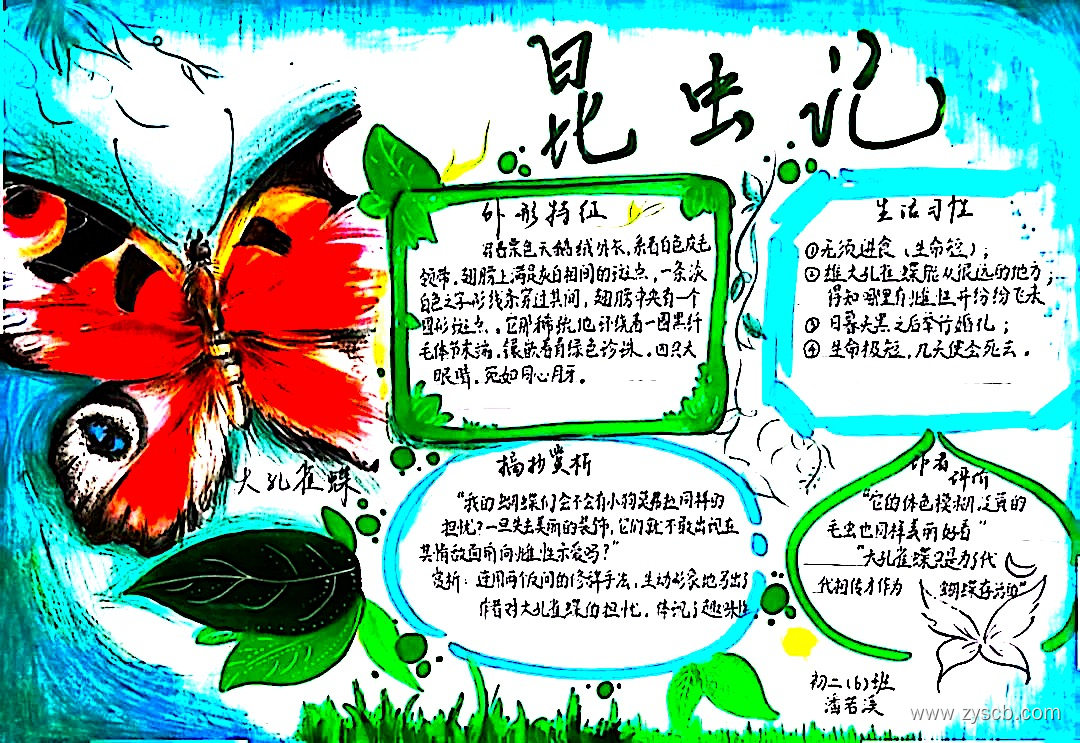 昆虫记
外形特征
身着栗色天鹅绒外衣，系着白色皮毛
领带，翅膀上满是灰白相间的斑点，一条淡
白色之字形线条穿过其间，翅膀中央有一个
圆形斑点，
毛体节末端，镶嵌着青绿色珍珠。
眼睛，宛如同心月牙。
生活习性
①无须进食（生命短）；
②雄大孔雀蝶能从很远的地方，
得知哪里有雌性并纷纷飞来
③日暮天黑之后举行婚礼；
④生命极短，几天便会死去。
大孔雀蝶
摘抄赏析
“我的蝴蝶们会不会有小狗莫弗拉同样的
担忧？一旦失去美丽的装饰，它们就不敢出现在
其情敌面前向雌性示爱吗？”
赏析：连用两个反问的修辞手法，生动形象地写出了
作者对大孔雀蝶的担忧，体现了趣味性
作者评价
“它的体色模糊泛黄的
毛虫也同样美丽好看”
“大孔雀蝶只是为了代
代相传才作为
蝴蝶存活的”
初二（6）班
潘若溪
www.zyscb.com